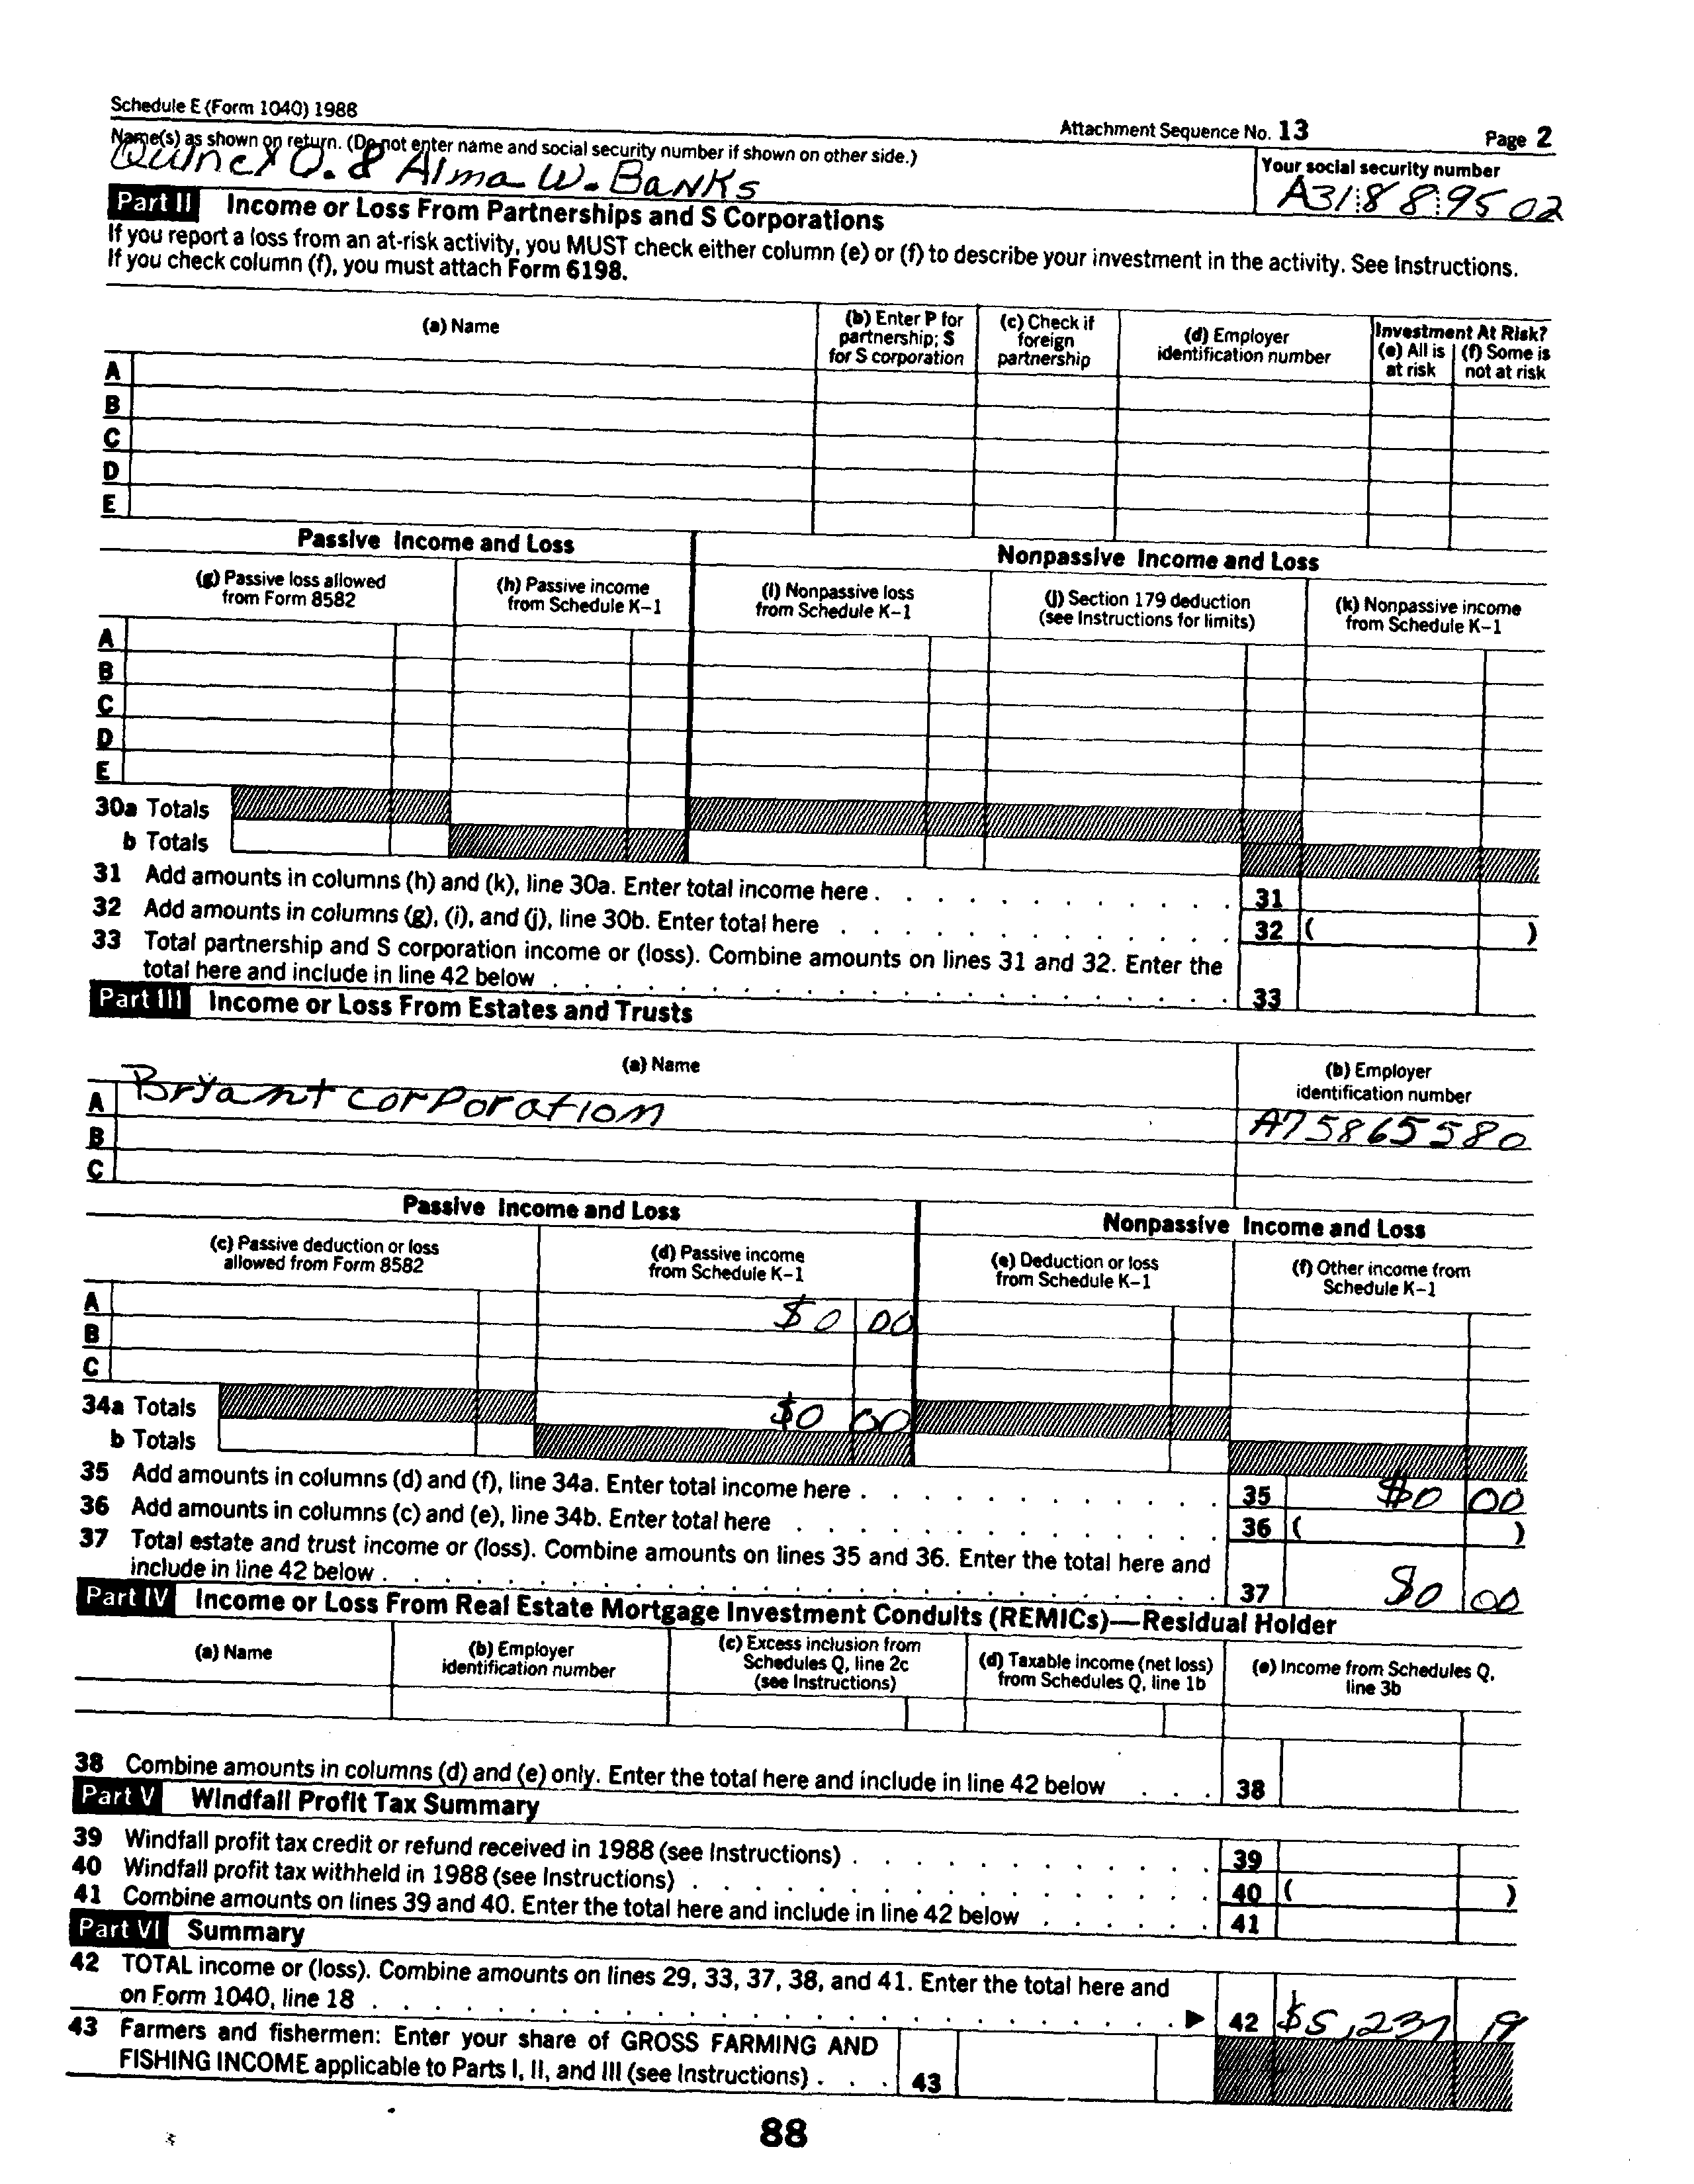 Schedule E (Form 1040) 1988
Attachment Sequence No. 13
Page 2
Name(s) as shown on return. (Do not enter name and social security number if shown on other side.)
O. & Alma W. Banks
Your social security number
A31 88 9502
Part II Income or Loss From Partnerships and S Corporations
If you report a loss from an at-risk activity, you MUST check either column (e) or (f) to describe your investment in the activity. See Instructions.
If you check column (f), you must attach Form 6198.
(a) Name
(b) Enter P for partnership; S for S corporation
(c) Check if foreign partnership
(d) Employer identification number
Investment At Risk?
(e) All is at risk
(f) Some is not at risk
A
B
C
D
E
Passive Income and Loss
Nonpassive Income and Loss
(g) Passive loss allowed from Form 8582
(h) Passive income from Schedule K–1
(i) Nonpassive loss from Schedule K–1
(j) Section 179 deduction (see Instructions for limits)
(k) Nonpassive income from Schedule K–1
A
B
C
D
E
30a Totals
b Totals
31 Add amounts in columns (h) and (k), line 30a. Enter total income here . . . . . . . . . . . . 31
32 Add amounts in columns (g), (i), and (j), line 30b. Enter total here . . . . . . . . . . . . . 32 ( )
33 Total partnership and S corporation income or (loss). Combine amounts on lines 31 and 32. Enter the
total here and include in line 42 below . . . . . . . . . . . . . . . . . . . . . . 33
Part III Income or Loss From Estates and Trusts
(a) Name
(b) Employer identification number
A Bryant Corporation A75865580
B
C
Passive Income and Loss
Nonpassive Income and Loss
(c) Passive deduction or loss allowed from Form 8582
(d) Passive income from Schedule K–1
(e) Deduction or loss from Schedule K–1
(f) Other income from Schedule K–1
A $0 00
B
C
34a Totals $0 00
b Totals
35 Add amounts in columns (d) and (f), line 34a. Enter total income here . . . . . . . . . . . . 35 $0 00
36 Add amounts in columns (c) and (e), line 34b. Enter total here . . . . . . . . . . . . . . 36 ( )
37 Total estate and trust income or (loss). Combine amounts on lines 35 and 36. Enter the total here and
include in line 42 below . . . . . . . . . . . . . . . . . . . . . . . . . . 37 $0 00
Part IV Income or Loss From Real Estate Mortgage Investment Conduits (REMICs)—Residual Holder
(a) Name
(b) Employer identification number
(c) Excess inclusion from Schedules Q, line 2c (see Instructions)
(d) Taxable income (net loss) from Schedules Q, line 1b
(e) Income from Schedules Q, line 3b
38 Combine amounts in columns (d) and (e) only. Enter the total here and include in line 42 below . . . 38
Part V Windfall Profit Tax Summary
39 Windfall profit tax credit or refund received in 1988 (see Instructions) . . . . . . . . . . . . 39
40 Windfall profit tax withheld in 1988 (see Instructions) . . . . . . . . . . . . . . . . . 40 ( )
41 Combine amounts on lines 39 and 40. Enter the total here and include in line 42 below . . . . . . 41
Part VI Summary
42 TOTAL income or (loss). Combine amounts on lines 29, 33, 37, 38, and 41. Enter the total here and
on Form 1040, line 18 . . . . . . . . . . . . . . . . . . . . . . . . . . ▶ 42 $5,237
43 Farmers and fishermen: Enter your share of GROSS FARMING AND
FISHING INCOME applicable to Parts I, II, and III (see Instructions) . . . 43
88